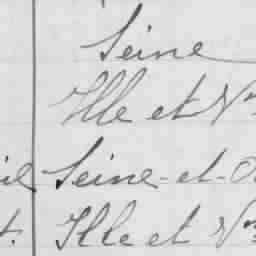 Seine
Ille et V
Seine-et-O
Ille et V